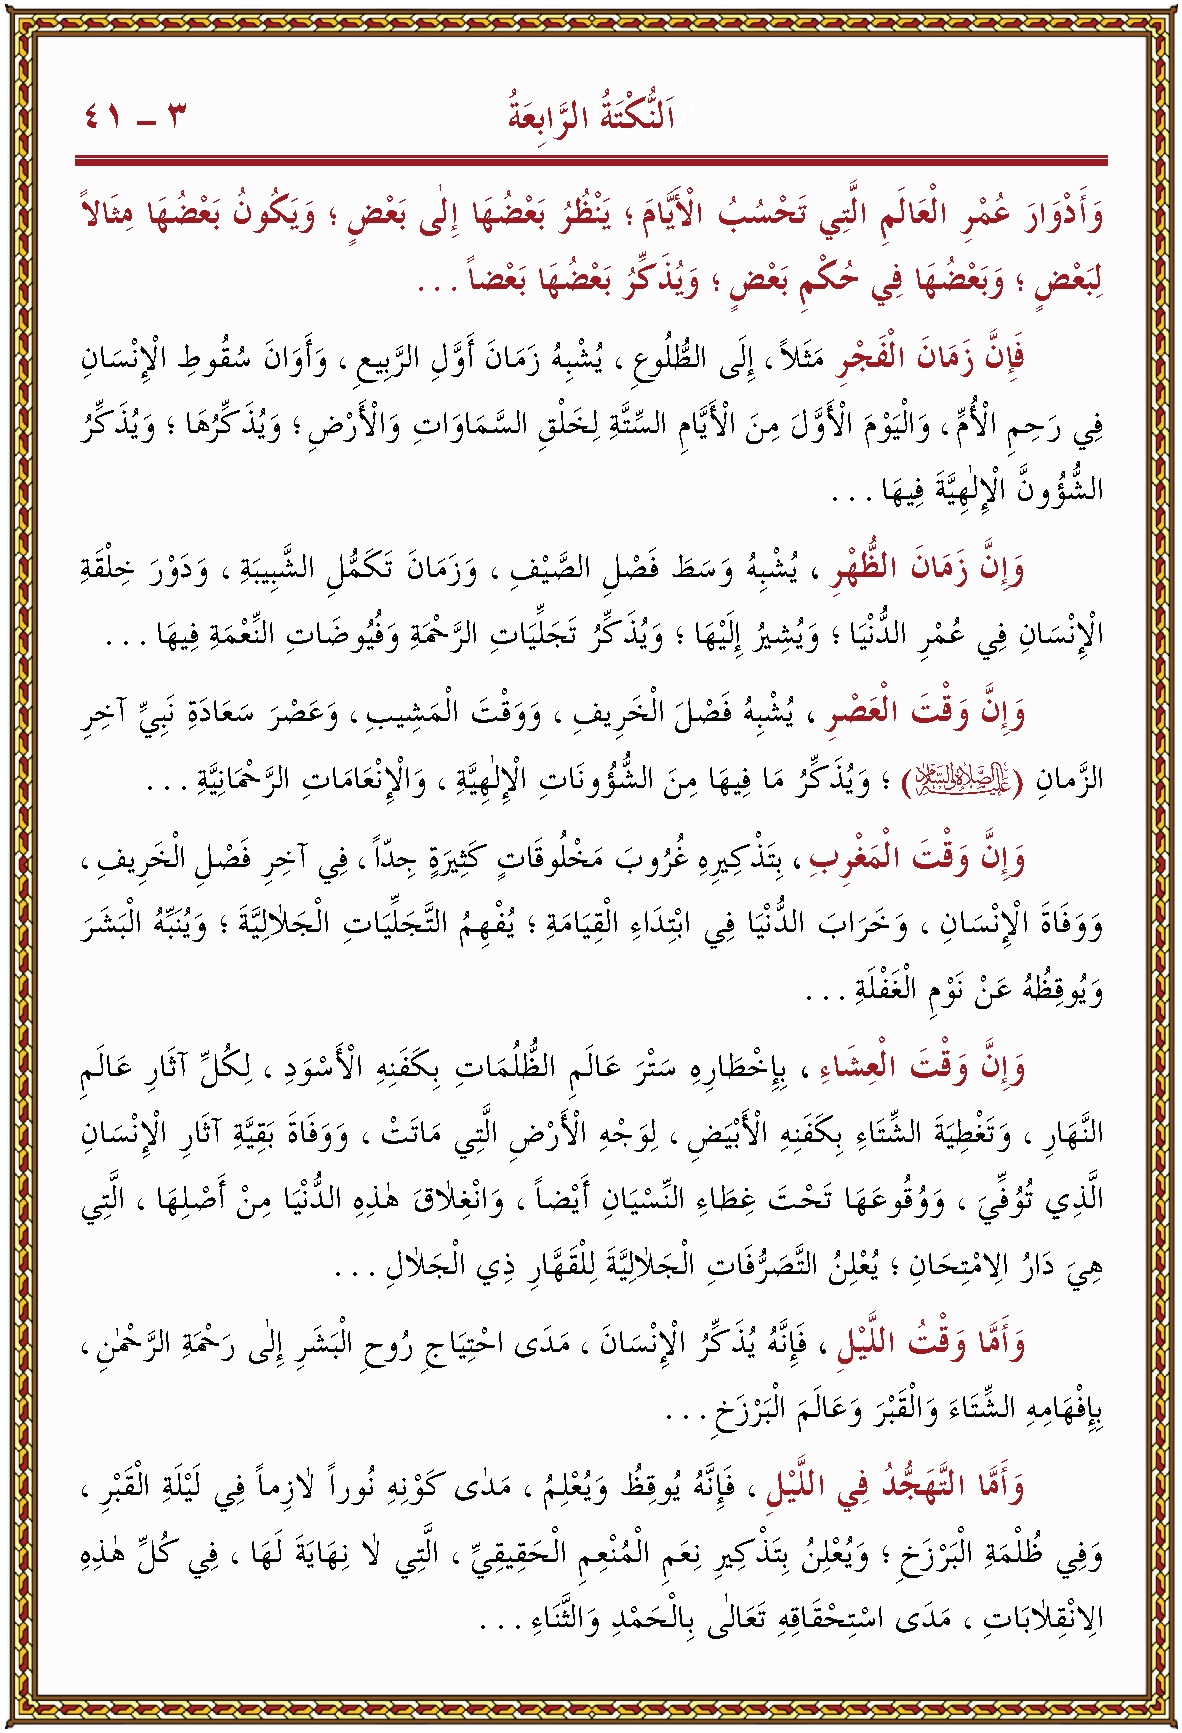 اَلنُّكْتَةُ الرَّابِعَةُ
٣ – ٤١
وَأَدْوَارَ عُمْرِ الْعَالَمِ الَّتِي تَحْسُبُ الْأَيَّامَ ؛ يَنْظُرُ بَعْضُهَا إِلٰى بَعْضٍ ؛ وَيَكُونُ بَعْضُهَا مِثَالاً
لِبَعْضٍ ؛ وَبَعْضُهَا فِي حُكْمِ بَعْضٍ ؛ وَيُذَكِّرُ بَعْضُهَا بَعْضاً . . .
فَإِنَّ زَمَانَ الْفَجْرِ مَثَلاً ، إِلَى الطُّلُوعِ ، يُشْبِهُ زَمَانَ أَوَّلِ الرَّبِيعِ ، وَأَوَانَ سُقُوطِ الْإِنْسَانِ
فِي رَحِمِ الْأُمِّ ، وَالْيَوْمَ الْأَوَّلَ مِنَ الْأَيَّامِ السِّتَّةِ لِخَلْقِ السَّمَاوَاتِ وَالْأَرْضِ ؛ وَيُذَكِّرُهَا ؛ وَيُذَكِّرُ
الشُّؤُونَّ الْإِلٰهِيَّةَ فِيهَا . . .
وَإِنَّ زَمَانَ الظُّهْرِ ، يُشْبِهُ وَسَطَ فَصْلِ الصَّيْفِ ، وَزَمَانَ تَكَمُّلِ الشَّبِيبَةِ ، وَدَوْرَ خِلْقَةِ
الْإِنْسَانِ فِي عُمْرِ الدُّنْيَا ؛ وَيُشِيرُ إِلَيْهَا ؛ وَيُذَكِّرُ تَجَلِّيَاتِ الرَّحْمَةِ وَفُيُوضَاتِ النِّعْمَةِ فِيهَا . . .
وَإِنَّ وَقْتَ الْعَصْرِ ، يُشْبِهُ فَصْلَ الْخَرِيفِ ، وَوَقْتَ الْمَشِيبِ ، وَعَصْرَ سَعَادَةِ نَبِيِّ آخِرِ
الزَّمانِ (عَلَيْهِ الصَّلَاةُ وَالسَّلَامُ) ؛ وَيُذَكِّرُ مَا فِيهَا مِنَ الشُّؤُونَاتِ الْإِلٰهِيَّةِ ، وَالْإِنْعَامَاتِ الرَّحْمَانِيَّةِ . . .
وَإِنَّ وَقْتَ الْمَغْرِبِ ، بِتَذْكِيرِهِ غُرُوبَ مَخْلُوقَاتٍ كَثِيرَةٍ جِدّاً ، فِي آخِرِ فَصْلِ الْخَرِيفِ ،
وَوَفَاةَ الْإِنْسَانِ ، وَخَرَابَ الدُّنْيَا فِي ابْتِدَاءِ الْقِيَامَةِ ؛ يُفْهِمُ التَّجَلِّيَاتِ الْجَلاٰلِيَّةَ ؛ وَيُنَبِّهُ الْبَشَرَ
وَيُوقِظُهُ عَنْ نَوْمِ الْغَفْلَةِ . . .
وَإِنَّ وَقْتَ الْعِشَاءِ ، بِإِخْطَارِهِ سَتْرَ عَالَمِ الظُّلُمَاتِ بِكَفَنِهِ الْأَسْوَدِ ، لِكُلِّ آثَارِ عَالَمِ
النَّهَارِ ، وَتَغْطِيَةَ الشِّتَاءِ بِكَفَنِهِ الْأَبْيَضِ ، لِوَجْهِ الْأَرْضِ الَّتِي مَاتَتْ ، وَوَفَاةَ بَقِيَّةِ آثَارِ الْإِنْسَانِ
الَّذِي تُوُفِّيَ ، وَوُقُوعَهَا تَحْتَ غِطَاءِ النِّسْيَانِ أَيْضاً ، وَانْغِلاٰقَ هٰذِهِ الدُّنْيَا مِنْ أَصْلِهَا ، الَّتِي
هِيَ دَارُ الِامْتِحَانِ ؛ يُعْلِنُ التَّصَرُّفَاتِ الْجَلاٰلِيَّةَ لِلْقَهَّارِ ذِي الْجَلاٰلِ . . .
وَأَمَّا وَقْتُ اللَّيْلِ ، فَإِنَّهُ يُذَكِّرُ الْإِنْسَانَ ، مَدَى احْتِيَاجِ رُوحِ الْبَشَرِ إِلٰى رَحْمَةِ الرَّحْمٰنِ ،
بِإِفْهَامِهِ الشِّتَاءَ وَالْقَبْرَ وَعَالَمَ الْبَرْزَخِ . . .
وَأَمَّا التَّهَجُّدُ فِي اللَّيْلِ ، فَإِنَّهُ يُوقِظُ وَيُعْلِمُ ، مَدٰى كَوْنِهِ نُوراً لاٰزِماً فِي لَيْلَةِ الْقَبْرِ ،
وَفِي ظُلْمَةِ الْبَرْزَخِ ؛ وَيُعْلِنُ بِتَذْكِيرِ نِعَمِ الْمُنْعِمِ الْحَقِيقِيِّ ، الَّتِي لاٰ نِهَايَةَ لَهَا ، فِي كُلِّ هٰذِهِ
الِانْقِلاٰبَاتِ ، مَدَى اسْتِحْقَاقِهِ تَعَالٰى بِالْحَمْدِ وَالثَّنَاءِ . . .